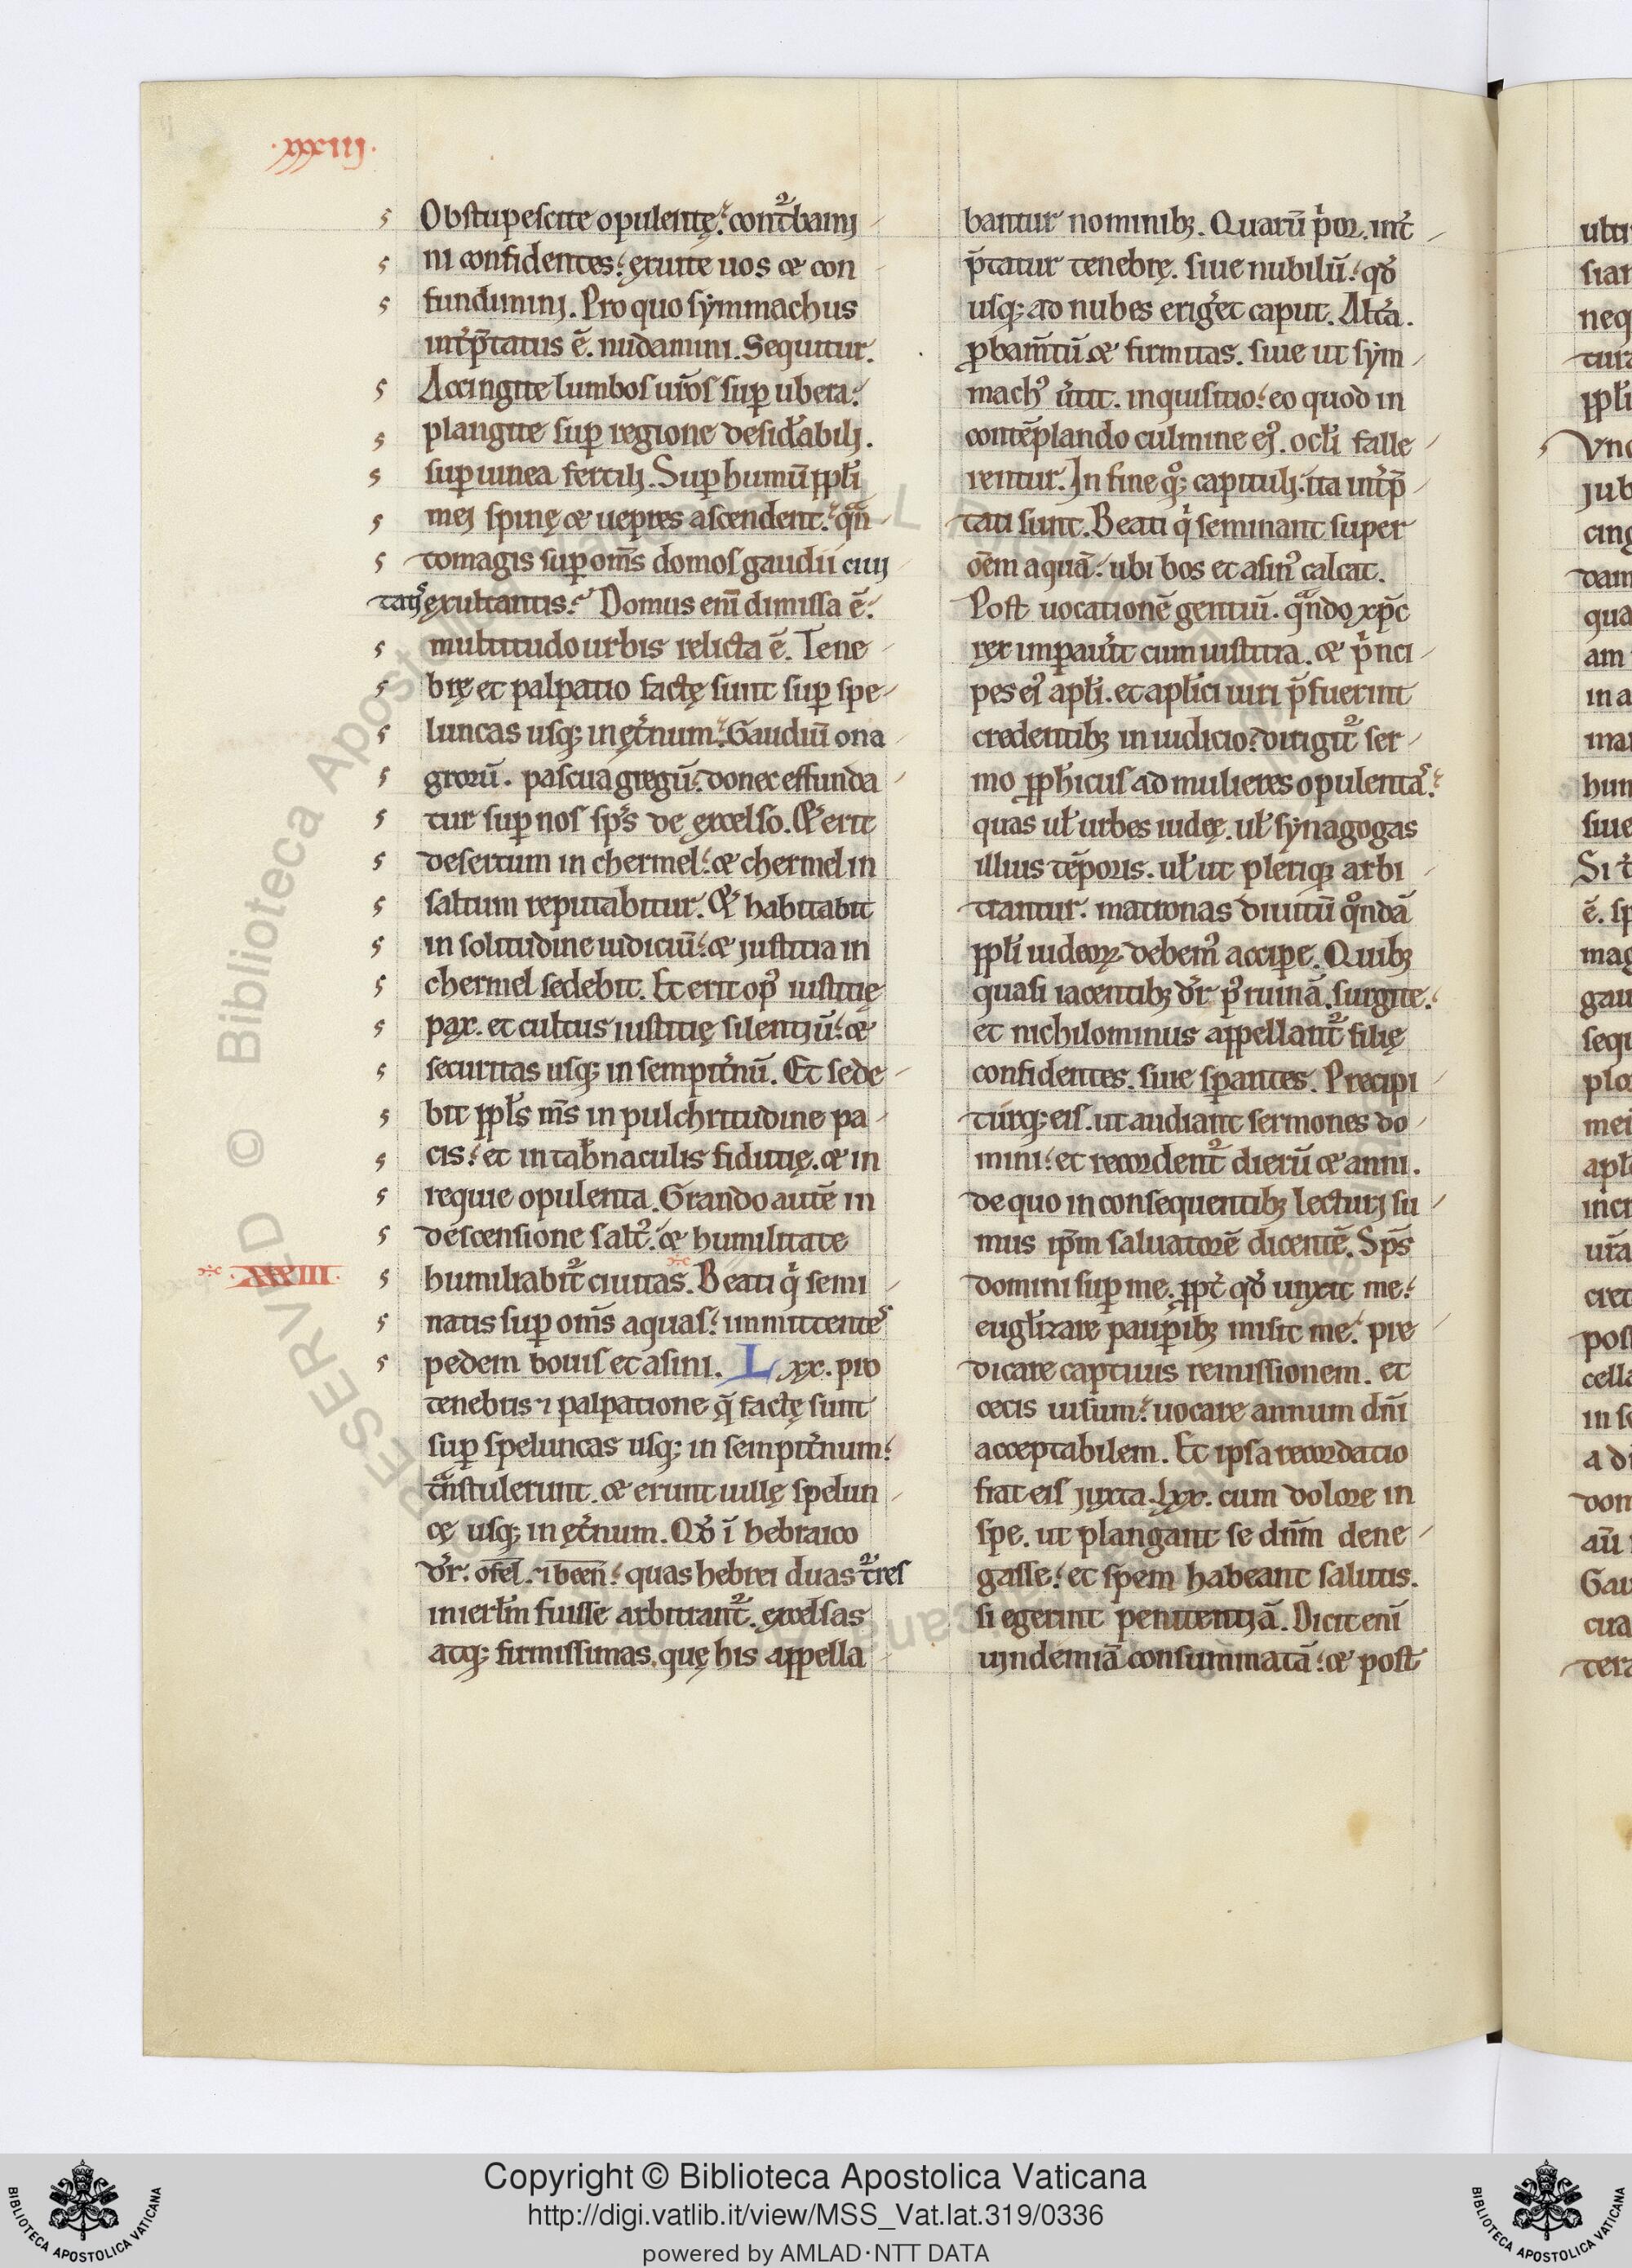 ·xxxiij·
Obstupescite opulentę. cont̄bamj
ni confidentes. exuite uos & con
fundiminj. Pro quo sẏmmachus
int̄p̄tatus ē. nudamini. Sequitur.
Accingite lumbos ur̄os sup̱ ubera.
plangite sup̱ regione desid̄abilj.
sup̱ uinea fertilj. Sup̱ humū ppl̄i
mej spinę & uepres ascendent. qn̄
to magis sup̱ om̄s domos gaudii ciuj
tatis exultantis. Domus eni dimissa ē.
multitudo urbis relicta ē. Tene
brę et palpatio factę sunt sup̱ spe
luncas usq; in ęt̄num. Gaudiū ona
grorū. pascua gregū. donec effunda
tur sup̱ nos sp̄s de excelso. & erit
desertum in chermel. & chermel in
saltum reputabitur. & habitabit
in solitudine iudiciū. & justitia in
chermel sedebit. Et erit op᾿ iustitię
pax. et cultus iustitię silentjū. &
securitas usq; in sempit̄nū. Et sede
bit ppl̄s ms̄ in pulchritudine pa
cis. et in tab̄naculis fidutię. & in
requie opulenta. Grando autē in
descensione salt᾿. & humilitate
·XXXIII·
humiliabit̄ ciuitas. Beati q̇ semi
natis sup̱ om̄s aquas. inmittentes
pedem bouis et asini. L xx. pro
tenebris ⁊ palpatione q̄ factę sunt
sup̱ speluncas usq; in sempit̄num.
tn̄stulerunt. & erunt uillę spelun
cę usq; in ęt̄num. Qđ ī hebraico
dr̄. ofel. ⁊ been. quas hebrei duas t̄res
in ierl̄m fuisse arbitrant̄. excelsas
atq; firmissimas. quę his appella
bantur nominib;. Quarū p̓or. int̄
p̄tatur tenebrę. siue nubilū. qđ
usq; ad nubes erig̓et caput. Alt̄a.
ꝓbam̄tū & firmitas. siue ut sẏm
mach᾿ u̓tit. inquisitio. eo quod in
contēplando culmine ej᾿. ocl̄i falle
rentur. In fine q̊; capitulj. ita int̄p̄
tati sunt. Beati q̇ seminant super
oēm aquā. ubi bos et asin᾿ calcat.
Post uocationē gentiū. qn̄do xp̄c
rex imp̱au̓it cum iustitia. & p̓nci
pes ej᾿ apl̄i. et apl̄ici uiri p̄fuerint
credentib; in iudicio. dirigit̄ ser
mo pph̄icus ad mulieres opulentas.
quas ul̄ urbes iudeę. ul̄ sẏnagogas
illius tēporis. ul̄ ut pleriq; arbi
trantur. matronas diuitū q̊ndā
ppl̄i iudeoꝝ debem᾿ accip̱e. Quib;
quasi iacentib; dr̄ p᾿ ruinā. surgite.
et nichilominus appellant̄ filię
confidentes. siue sp̱antes. Precipi
turq; eis. ut audiant sermones do
mini. et recordent̄ dierū & anni.
de quo in consequentib; lecturj su
mus ip̄m saluatorē dicentē. Sp̄s
domini sup̱ me. ppt̄ qđ unxit me.
eugl̄izare paup̱ib; misit me. pre
dicare captiuis remissionem. et
cecis uisum. uocare annum dn̄i
acceptabilem. Et ipsa recordatio
fiat eis juxta. Lxx. cum dolore in
spe. ut plangant se dn̄m dene
gasse. et spem habeant salutis.
si egerint penitentjā. Dicit enī
ujndemiā consummatā. & post
Copyright © Biblioteca Apostolica Vaticana
http://digi.vatlib.it/view/MSS_Vat.lat.319/0336
powered by AMLAD·NTT DATA